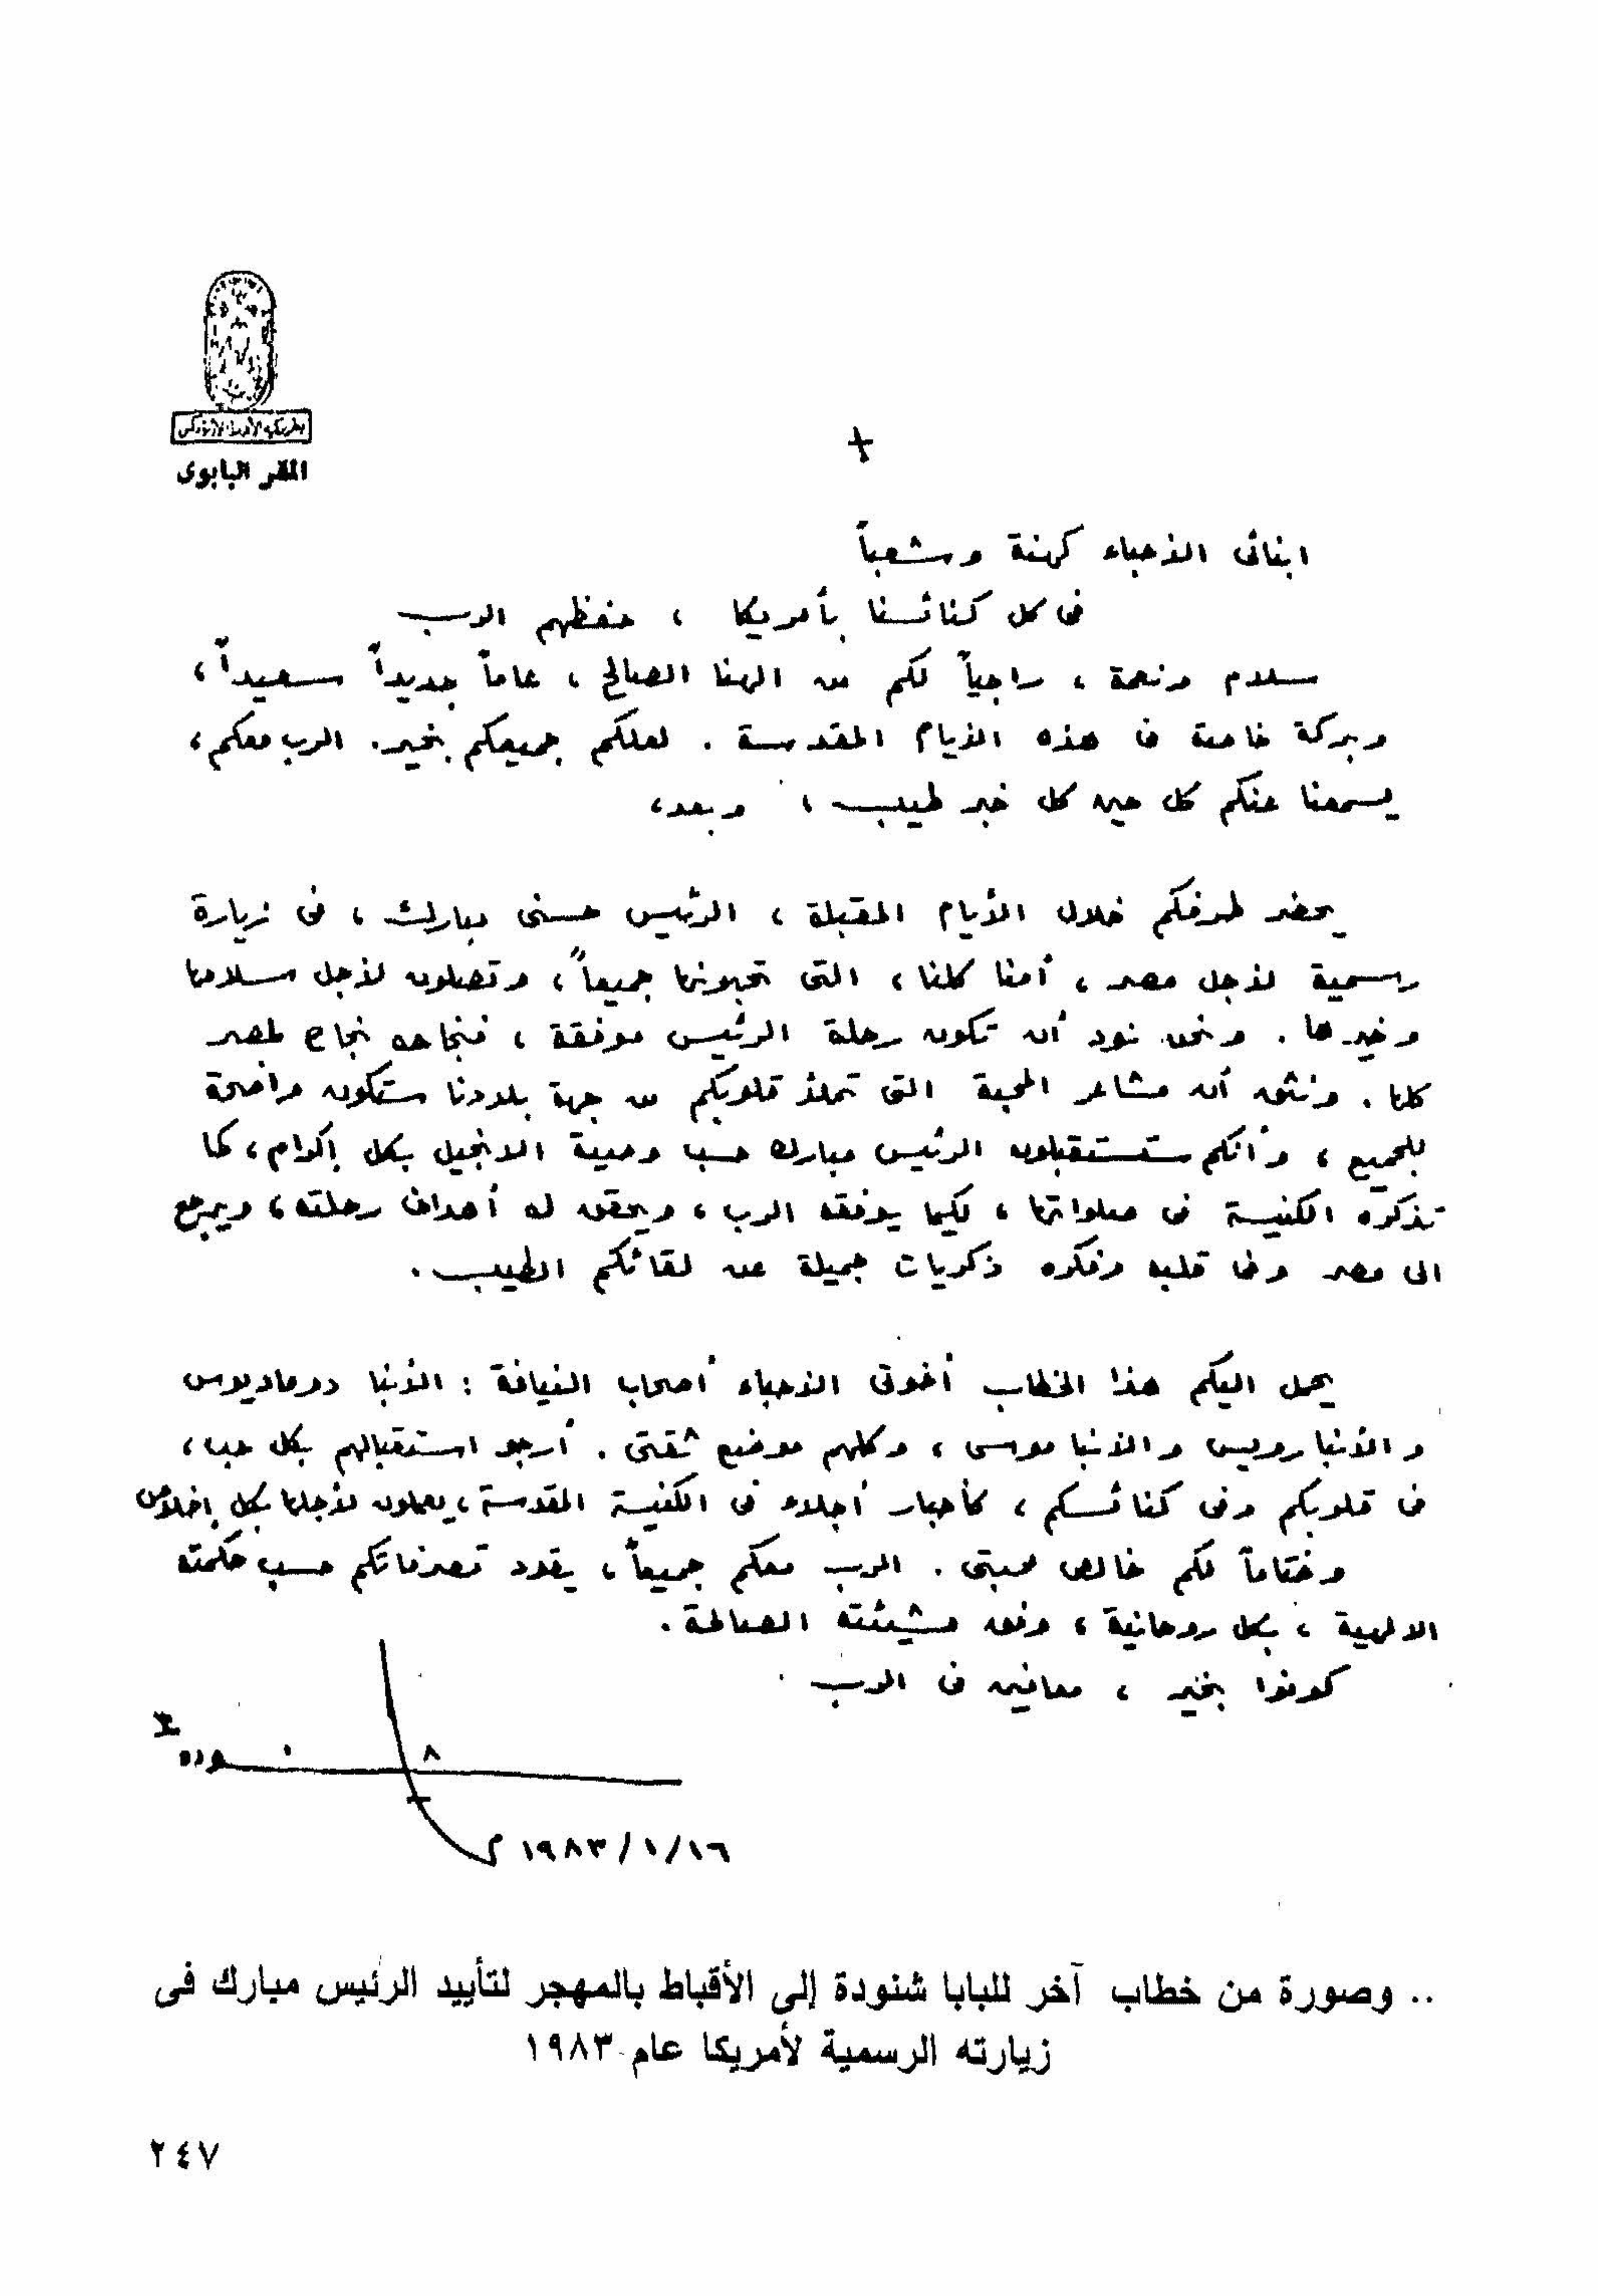 بطريركية الأقباط الأرثوذكس
المقر البابوى
ابنائى الأحباء كهنة وشعباً
فى كل كنائسنا بأمريكا ، حفظهم الرب
سلام ونعمة ، راجياً لكم من الهنا الصالح ، عاماً جديداً سعيداً ،
وبركة خاصة فى هذه الأيام المقدسة . لعلكم جميعكم بخير . الرب معكم ،
يسمعنا عنكم كل حين كل خبر طيب ، وبعد ،
يحضر لطرفكم خلال الأيام المقبلة ، الرئيس حسنى مبارك ، فى زيارة
رسمية لأجل مصر ، أمنا كلنا ، التى تحبونها جميعاً ، وتصلون لأجل سلامها
وخيرها . ونحن نود أن تكون رحلة الرئيس موفقة ، فنجاحه نجاح لمصر
كلها . ونثق أن مشاعر المحبة التى تملأ قلوبكم من جهة بلادنا ستكون واضحة
للجميع ، وأنكم ستستقبلون الرئيس مبارك حسب وصية الانجيل بكل إكرام ، كما
تذكره الكنيسة فى صلواتها ، لكيما يوفقه الرب ، ويحقق له أهداف رحلته ، ويرجع
الى مصر وفى قلبه وفكره ذكريات جميلة عن لقائكم الطيب .
يحمل اليكم هذا الخطاب أخوتى الأحباء أصحاب النيافة : الأنبا دوماديوس
والأنبا رويس والأنبا موسى ، وكلهم موضع ثقتى . أرجو استقبالهم بكل حب ،
فى قلوبكم وفى كنائسكم ، كأحبار أجلاء فى الكنيسة المقدسة ، يعملون لأجلها بكل إخلاص
وختاماً لكم خالص محبتى . الرب معكم جميعاً ، يقود تصرفاتكم حسب حكمته
الالهية ، بكل روحانية ، وفق مشيئته الصالحة .
كونوا بخير ، معافين فى الرب
شنوده
١٩٨٣/١/١٦ م
.. وصورة من خطاب آخر للبابا شنودة إلى الأقباط بالمهجر لتأييد الرئيس مبارك فى
زيارته الرسمية لأمريكا عام ١٩٨٣
٢٤٧